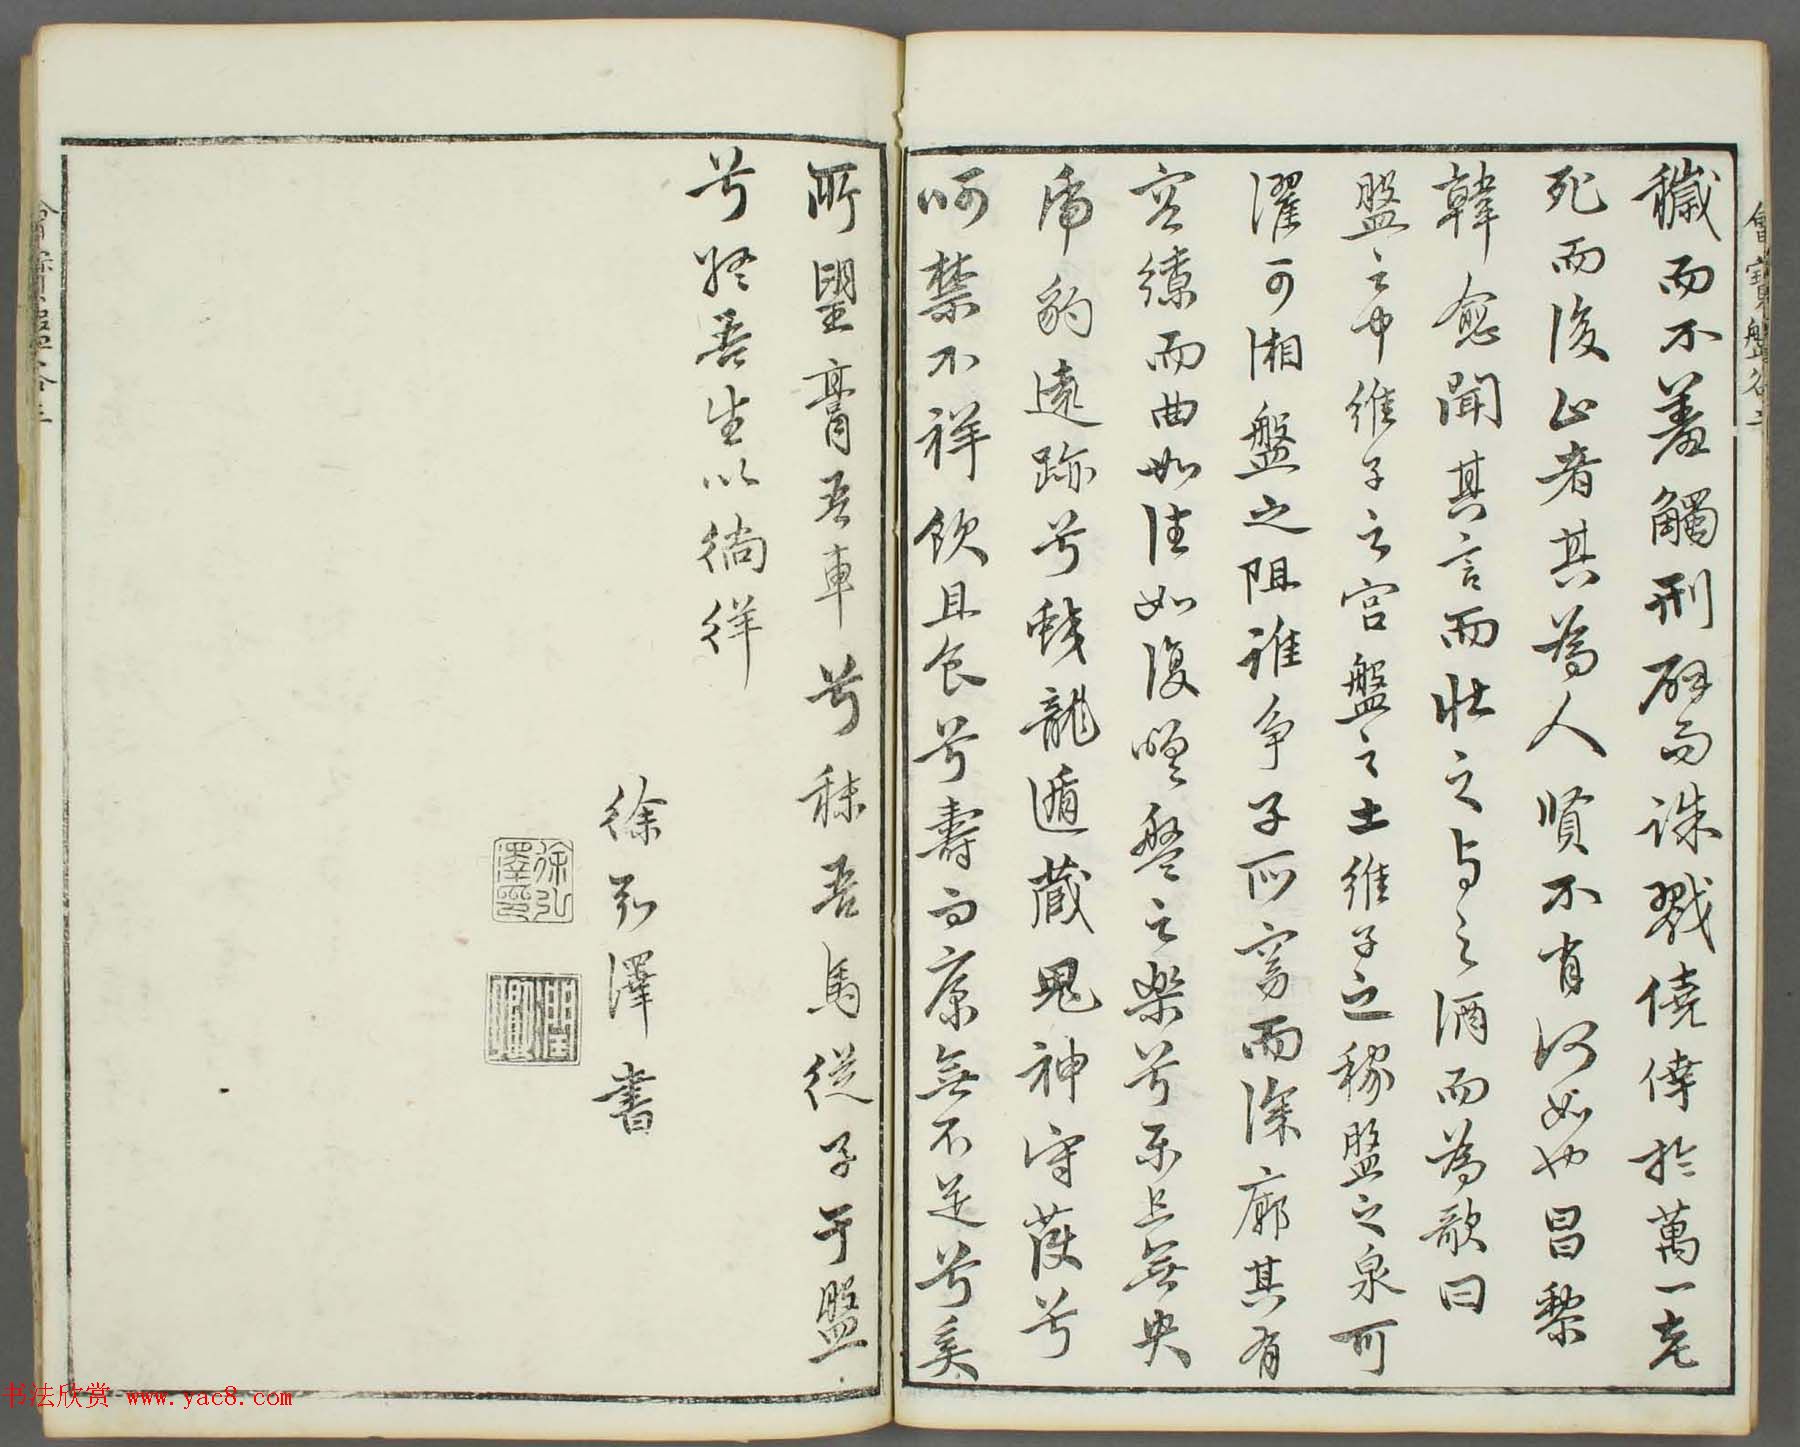 穢而不羞觸刑辟而誅戮僥倖於萬一老
死而後止者其為人賢不肖何如也昌黎
韓愈聞其言而壯之与之酒而為歌曰
盤之中維子之宮盤之土維子之稼盤之泉可
濯可湘盤之阻誰争子所窈而深廓其有
容繚而曲如往如復嗟盤之樂兮樂且無央
虎豹遠跡兮蛟龍遁藏鬼神守護兮
呵禁不祥飲且食兮壽而康無不足兮奚
所望膏吾車兮秣吾馬從子于盤
兮終吾生以徜徉
徐弘澤書
徐弘澤印
會寶盤谷二
书法欣赏 www.yac8.com